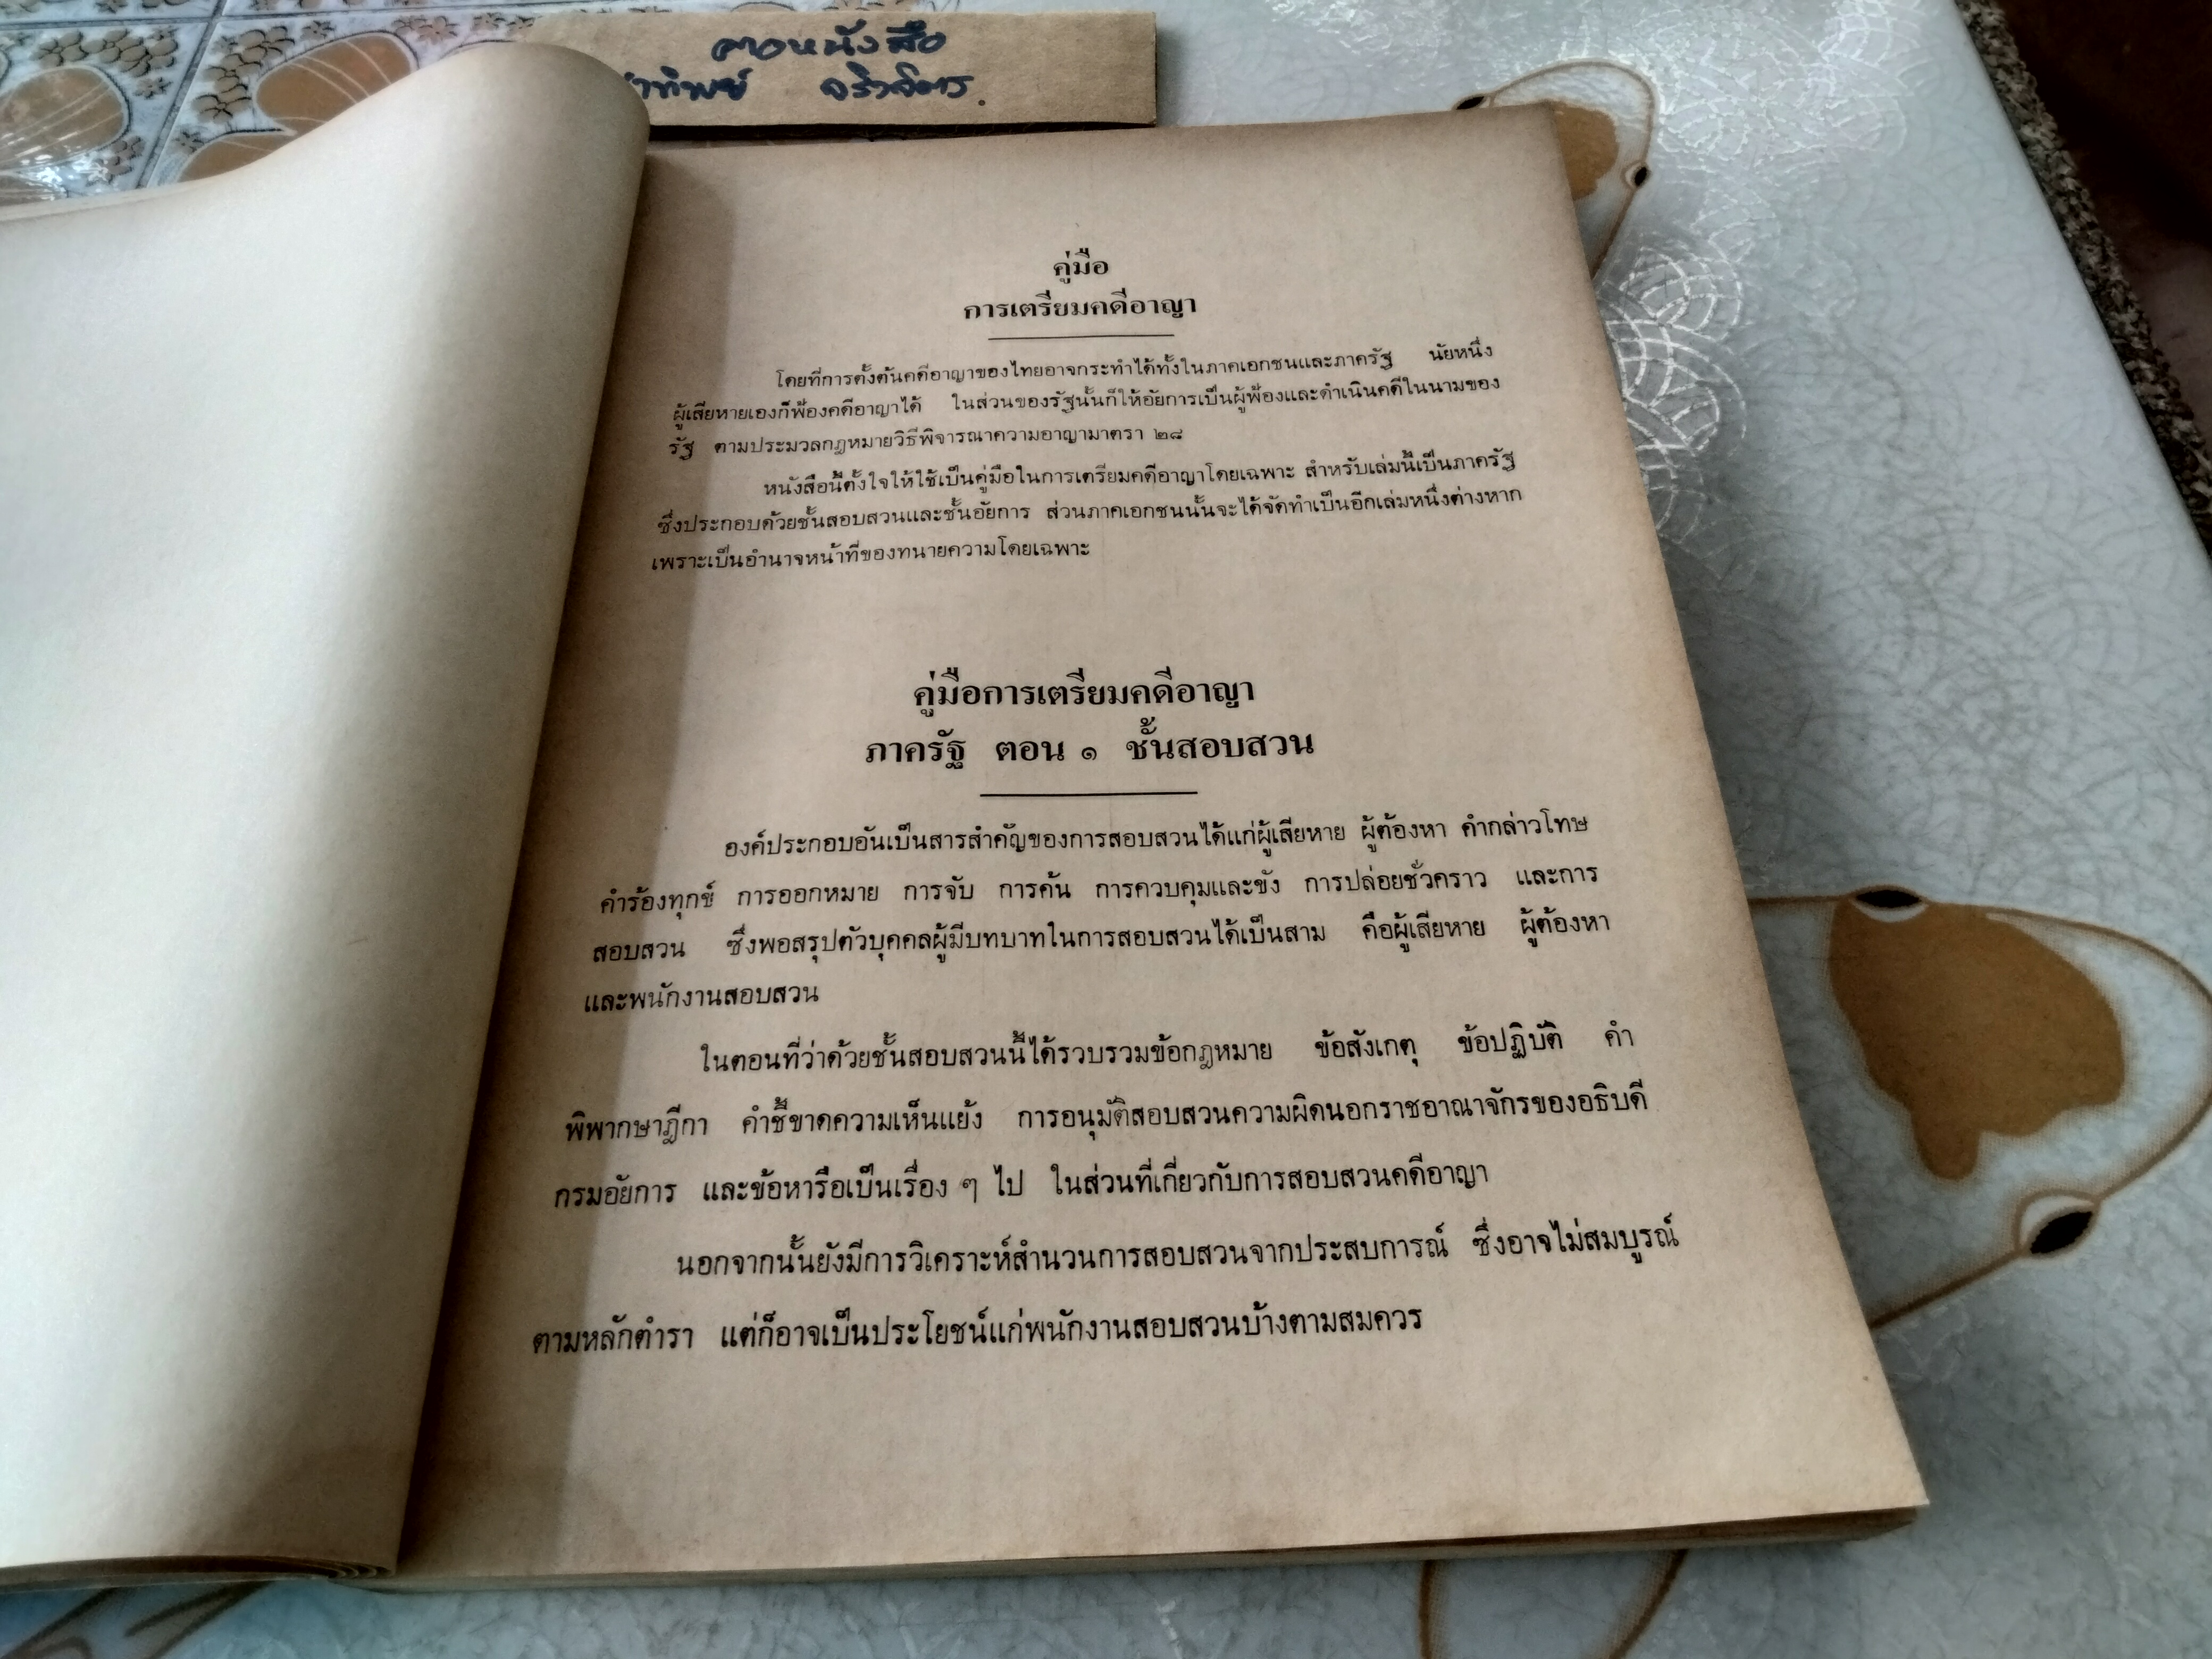 คู่มือ
การเตรียมคดีอาญา
โดยที่การตั้งต้นคดีอาญาของไทยอาจกระทำได้ทั้งในภาคเอกชนและภาครัฐ นัยหนึ่ง
ผู้เสียหายเองก็ฟ้องคดีอาญาได้ ในส่วนของรัฐนั้นก็ให้อัยการเป็นผู้ฟ้องและดำเนินคดีในนามของ
รัฐ ตามประมวลกฎหมายวิธีพิจารณาความอาญามาตรา ๒๘
หนังสือนี้ตั้งใจให้ใช้เป็นคู่มือในการเตรียมคดีอาญาโดยเฉพาะ สำหรับเล่มนี้เป็นภาครัฐ
ซึ่งประกอบด้วยชั้นสอบสวนและชั้นอัยการ ส่วนภาคเอกชนนั้นจะได้จัดทำเป็นอีกเล่มหนึ่งต่างหาก
เพราะเป็นอำนาจหน้าที่ของทนายความโดยเฉพาะ
คู่มือการเตรียมคดีอาญา
ภาครัฐ ตอน ๑ ชั้นสอบสวน
องค์ประกอบอันเป็นสารสำคัญของการสอบสวนได้แก่ผู้เสียหาย ผู้ต้องหา คำกล่าวโทษ
คำร้องทุกข์ การออกหมาย การจับ การค้น การควบคุมและขัง การปล่อยชั่วคราว และการ
สอบสวน ซึ่งพอสรุปตัวบุคคลผู้มีบทบาทในการสอบสวนได้เป็นสาม คือผู้เสียหาย ผู้ต้องหา
และพนักงานสอบสวน
ในตอนที่ว่าด้วยชั้นสอบสวนนี้ได้รวบรวมข้อกฎหมาย ข้อสังเกตุ ข้อปฏิบัติ คำ
พิพากษาฎีกา คำชี้ขาดความเห็นแย้ง การอนุมัติสอบสวนความผิดนอกราชอาณาจักรของอธิบดี
กรมอัยการ และข้อหารือเป็นเรื่อง ๆ ไป ในส่วนที่เกี่ยวกับการสอบสวนคดีอาญา
นอกจากนั้นยังมีการวิเคราะห์สำนวนการสอบสวนจากประสบการณ์ ซึ่งอาจไม่สมบูรณ์
ตามหลักตำรา แต่ก็อาจเป็นประโยชน์แก่พนักงานสอบสวนบ้างตามสมควร